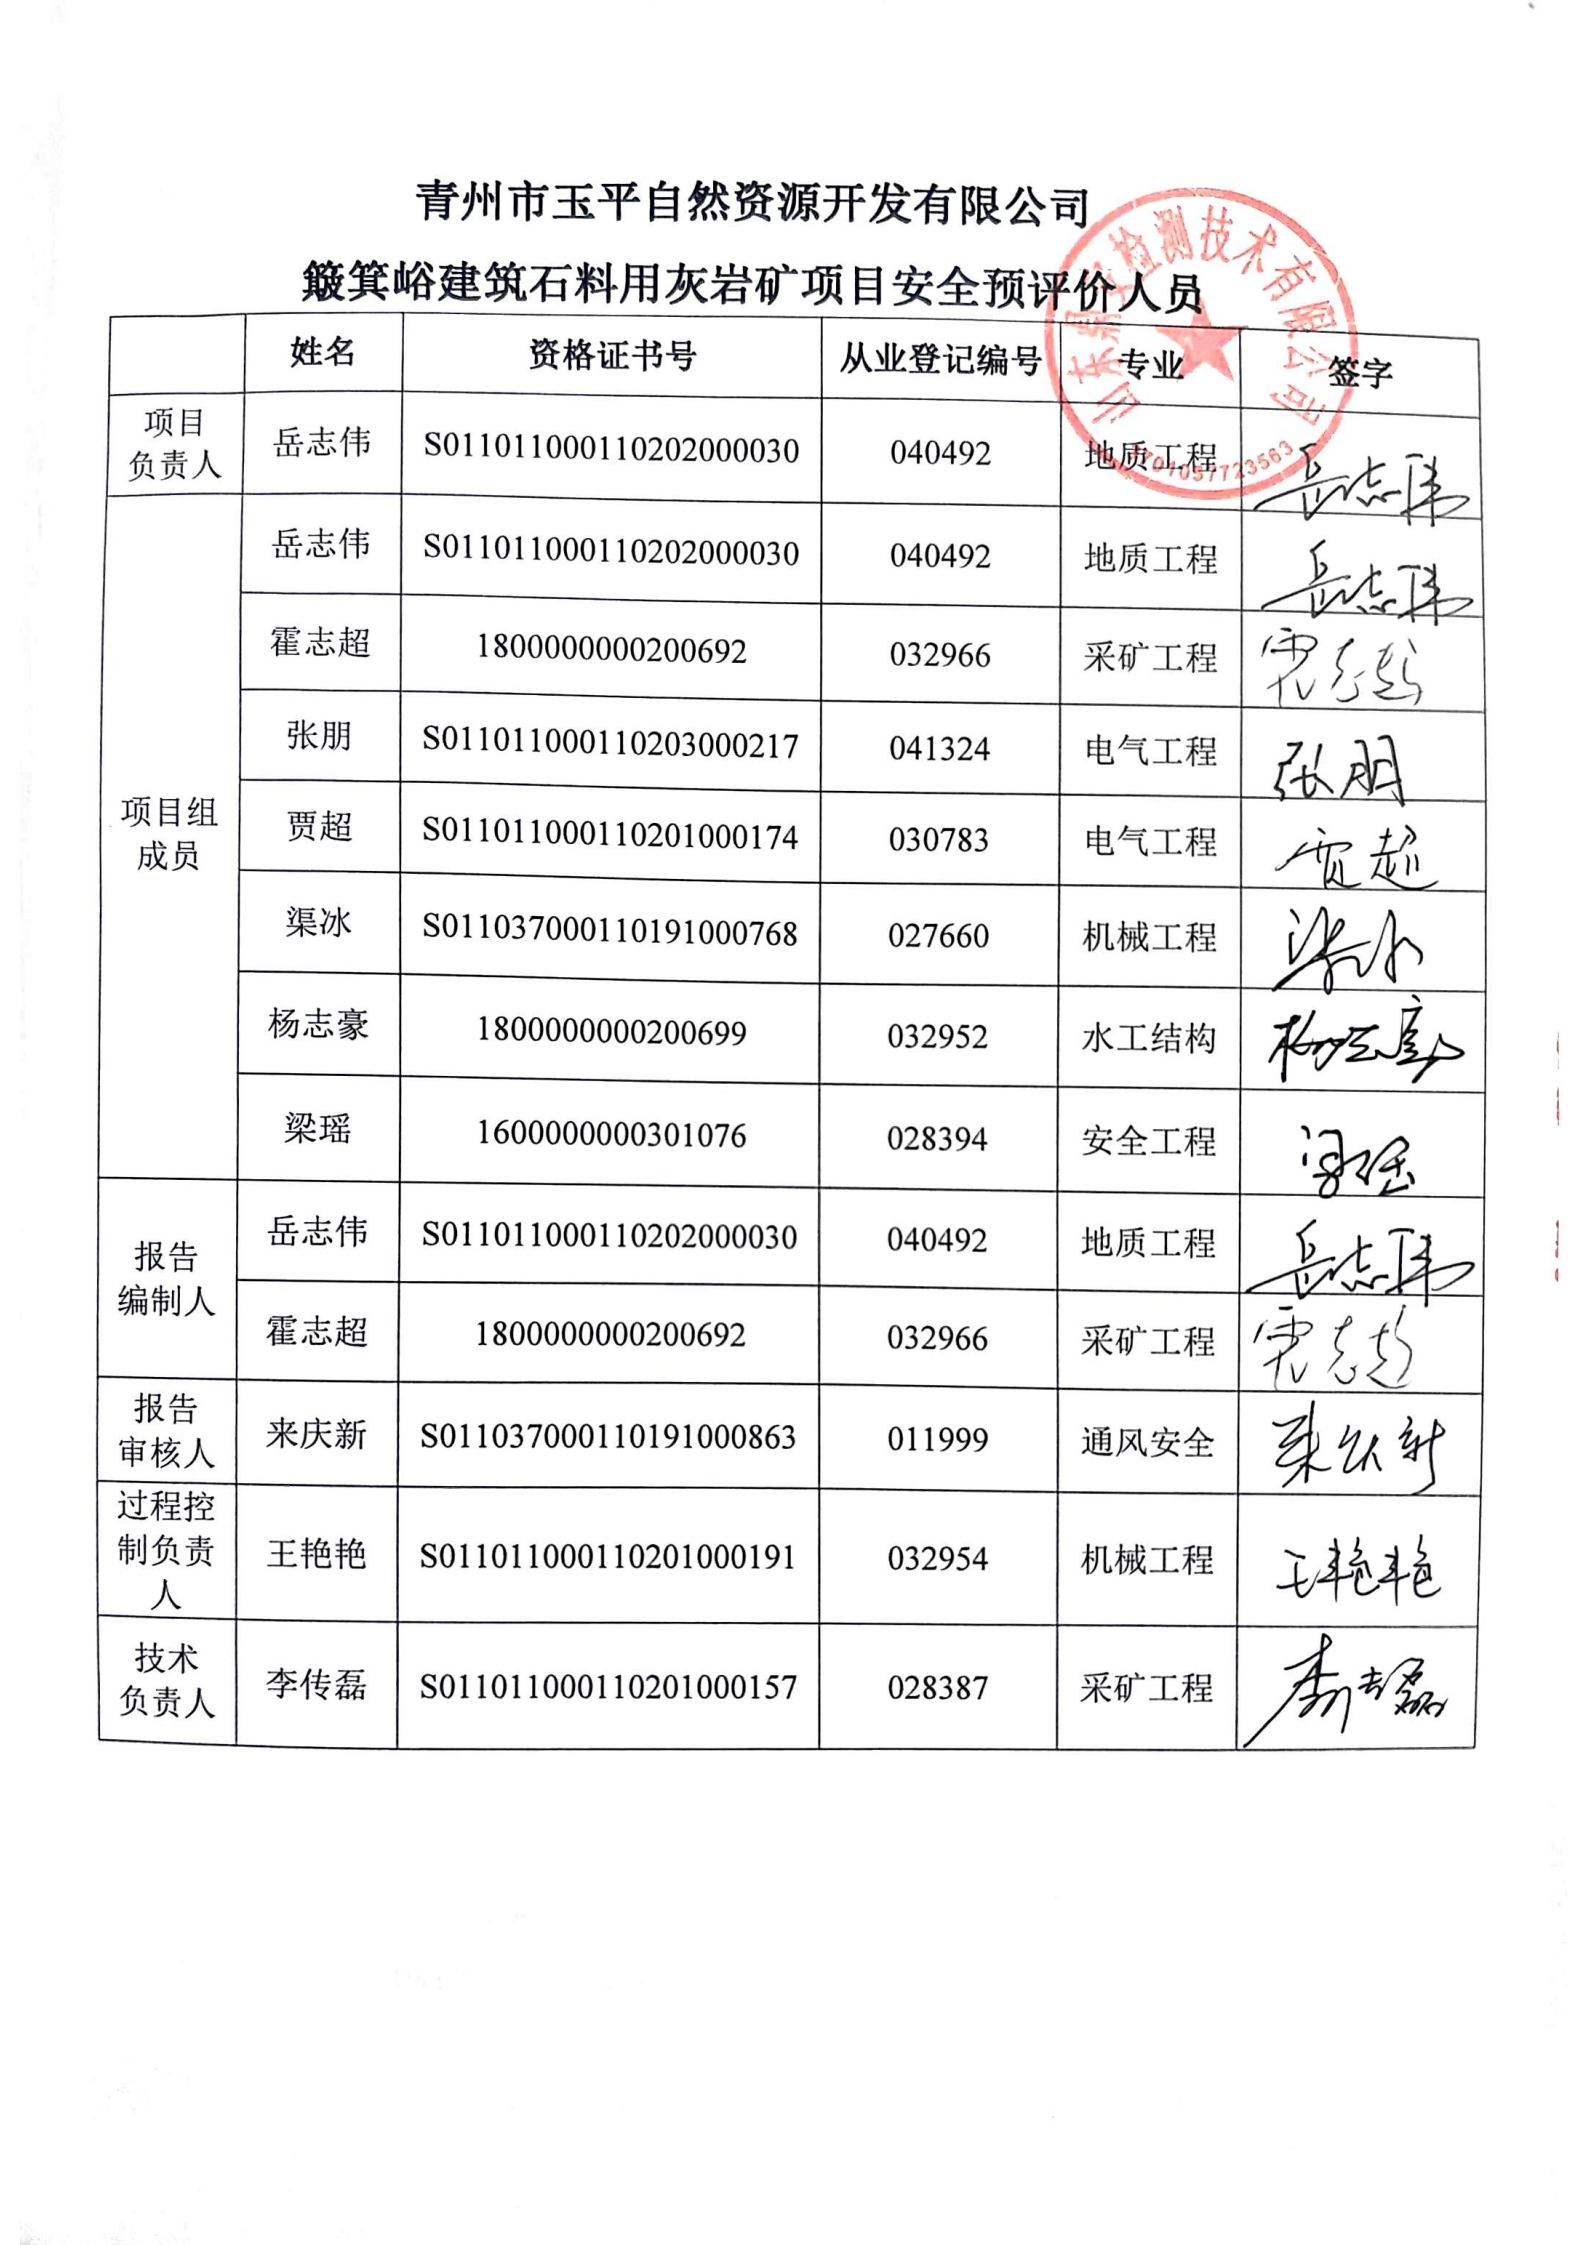 青州市玉平自然资源开发有限公司
簸箕峪建筑石料用灰岩矿项目安全预评价人员
姓名 资格证书号 从业登记编号 专业 签字
项目
负责人 岳志伟 S011011000110202000030 040492 地质工程 岳志伟
项目组
成员
岳志伟 S011011000110202000030 040492 地质工程 岳志伟
霍志超 1800000000200692 032966 采矿工程 霍志超
张朋 S011011000110203000217 041324 电气工程 张朋
贾超 S011011000110201000174 030783 电气工程 贾超
渠冰 S011037000110191000768 027660 机械工程 渠冰
杨志豪 1800000000200699 032952 水工结构 杨志豪
梁瑶 1600000000301076 028394 安全工程 梁瑶
报告
编制人
岳志伟 S011011000110202000030 040492 地质工程 岳志伟
霍志超 1800000000200692 032966 采矿工程 霍志超
报告
审核人 来庆新 S011037000110191000863 011999 通风安全 来庆新
过程控
制负责
人 王艳艳 S011011000110201000191 032954 机械工程 王艳艳
技术
负责人 李传磊 S011011000110201000157 028387 采矿工程 李传磊
检测技术有限公司